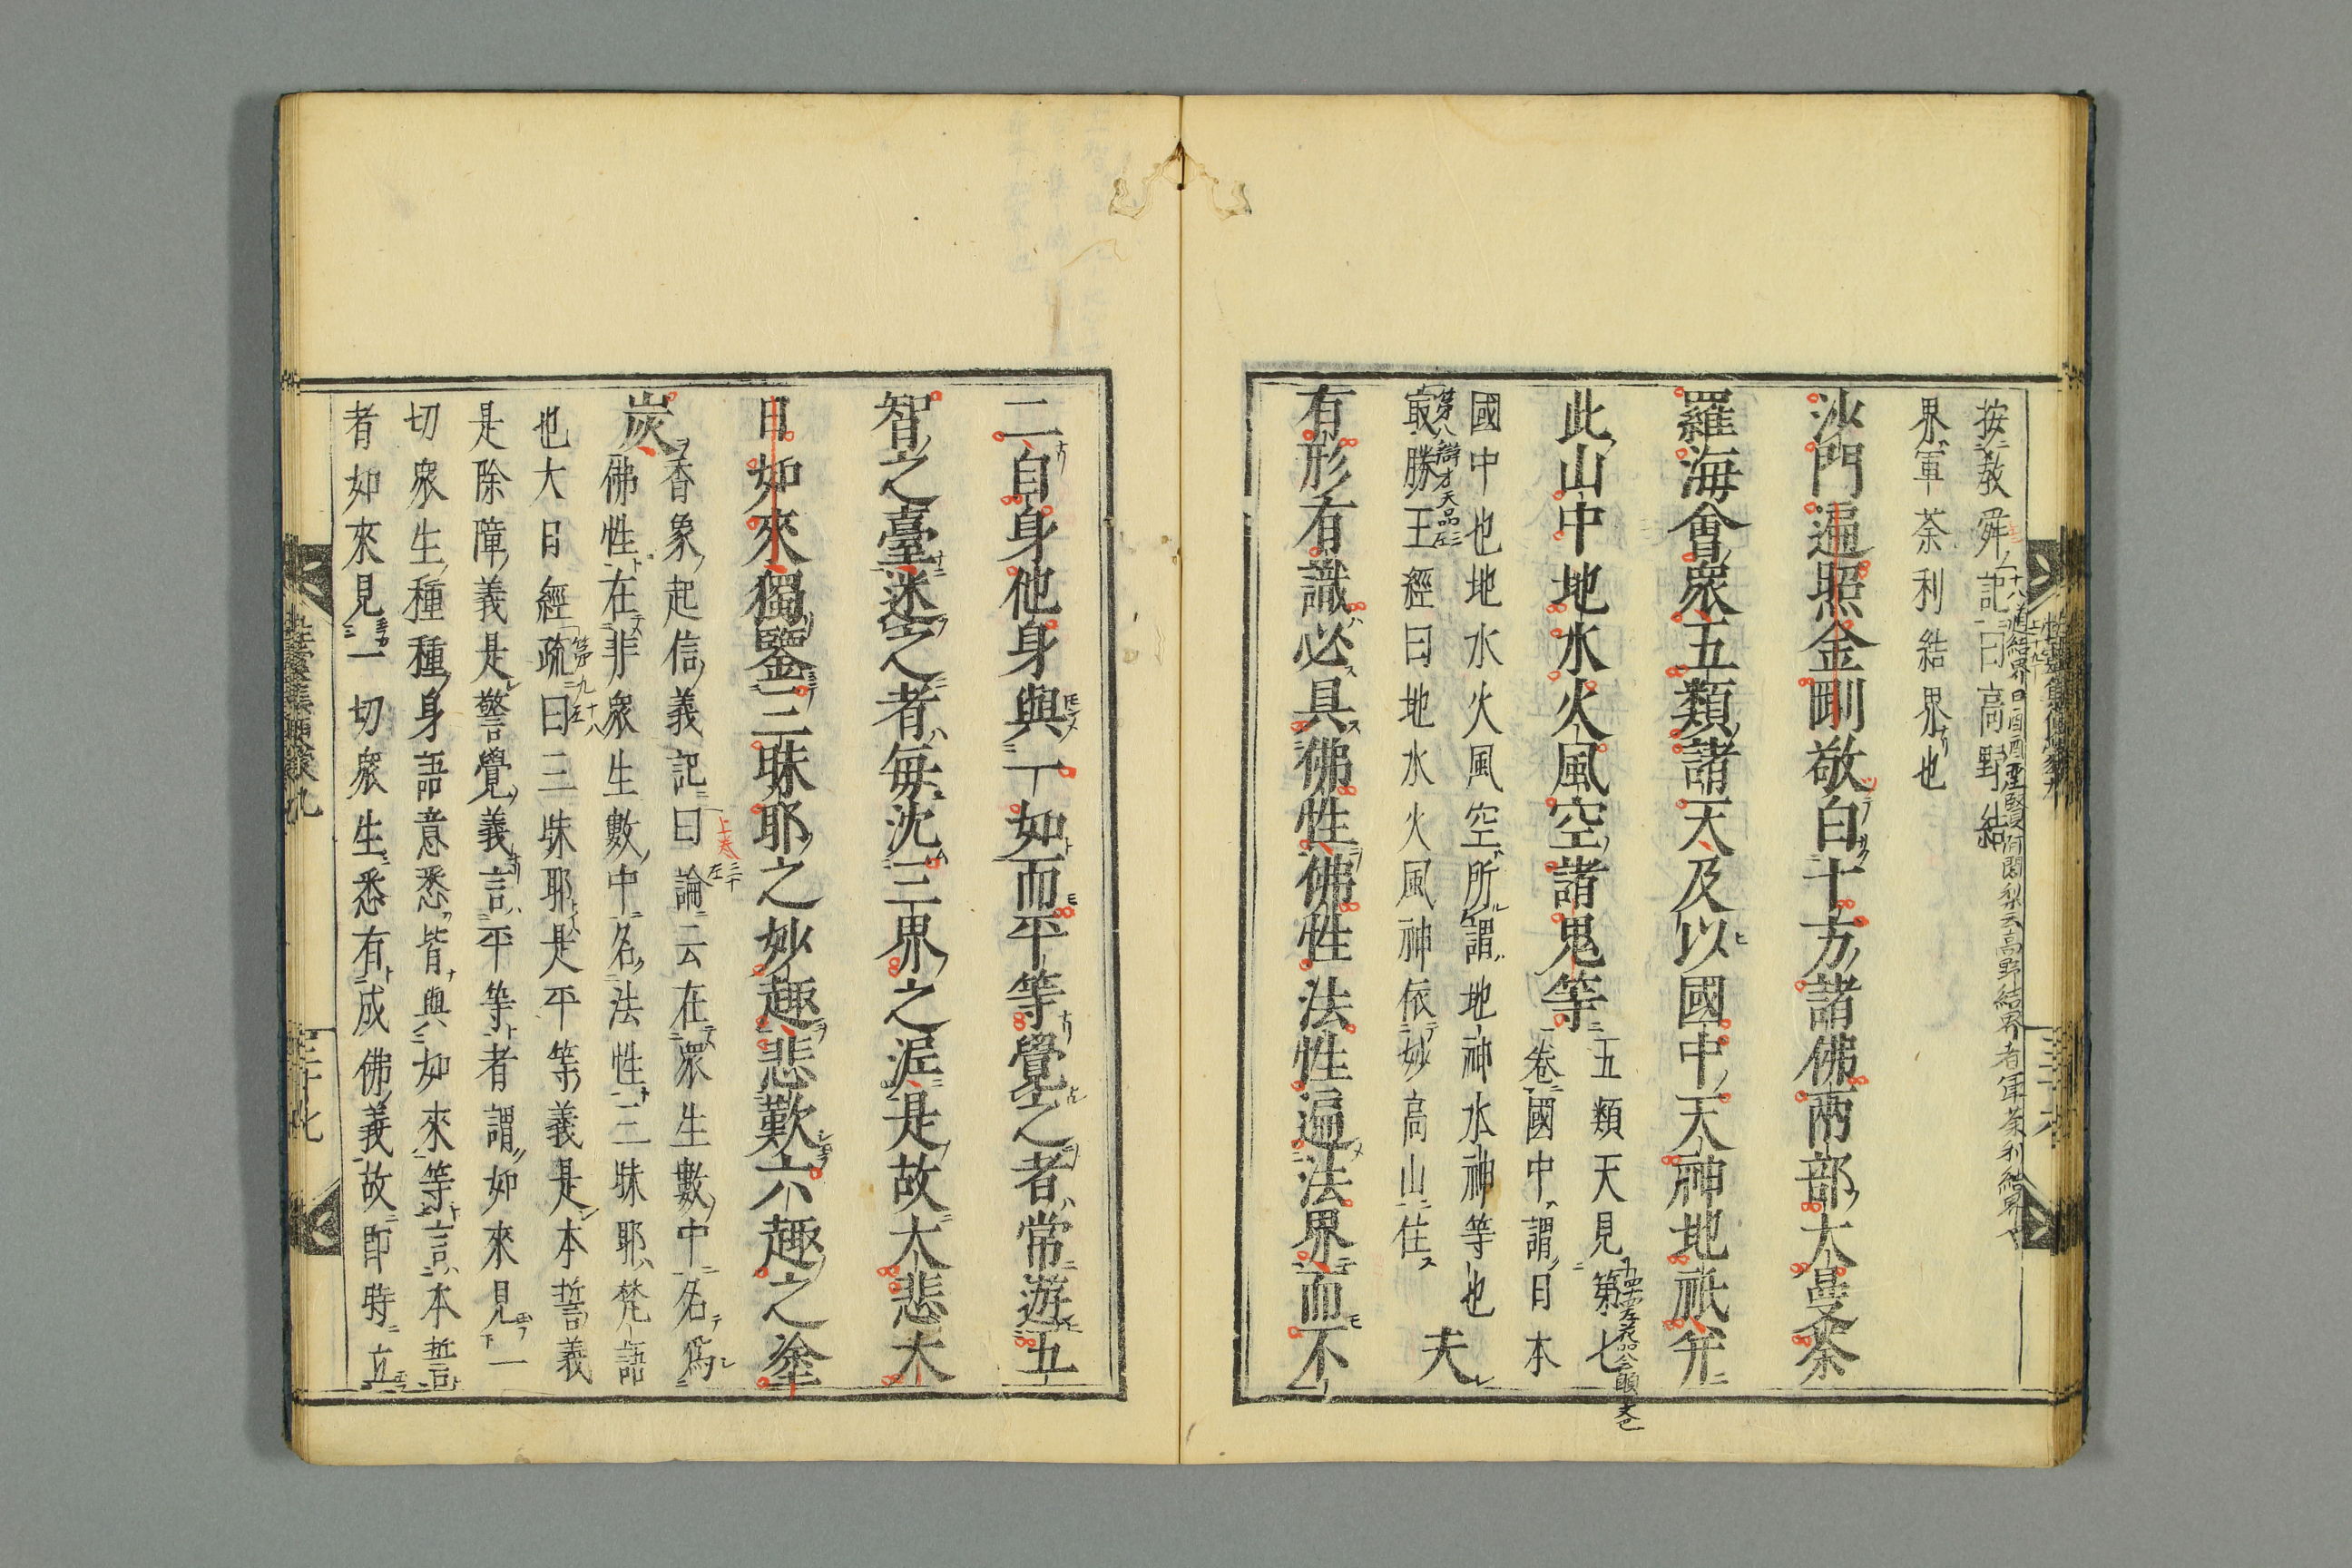 按教舜記曰高野結
界軍荼利結界也
沙門遍照金剛敬白十方諸佛兩部大曼荼
羅海會衆五類諸天及以國中天神地祇并
此山中地水火風空諸鬼等
五類天見第七
卷國中謂日本
國中也地水火風空所謂地神水神等也
㝡勝王經曰地水火風神依妙高山住
第八辯才天品
夫
有形有識必具佛性佛性法性遍法界而不
二自身他身與一如而平等覺之者常遊五
智之臺迷之者每沈三界之泥是故大悲大
日如來獨鑒三昧耶之妙趣悲歎六趣之塗
炭
香象起信義記曰論云在衆生數中名爲
上卷
佛性在非衆生數中名法性三昧耶梵語
也大日經疏曰三昧耶是平等義是本誓義
第九
是除障義是警覺義言平等者謂如來見一
切衆生種種身語意悉皆與如來等言本誓
者如來見一切衆生悉有成佛義故即時立
三十七